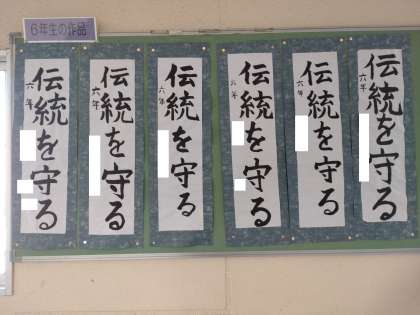 6年生の作品
伝統を守る
六年
伝統を守る
六年
伝統を守る
六年
伝統を守る
六年
伝統を守る
六年
伝統を守る
六年